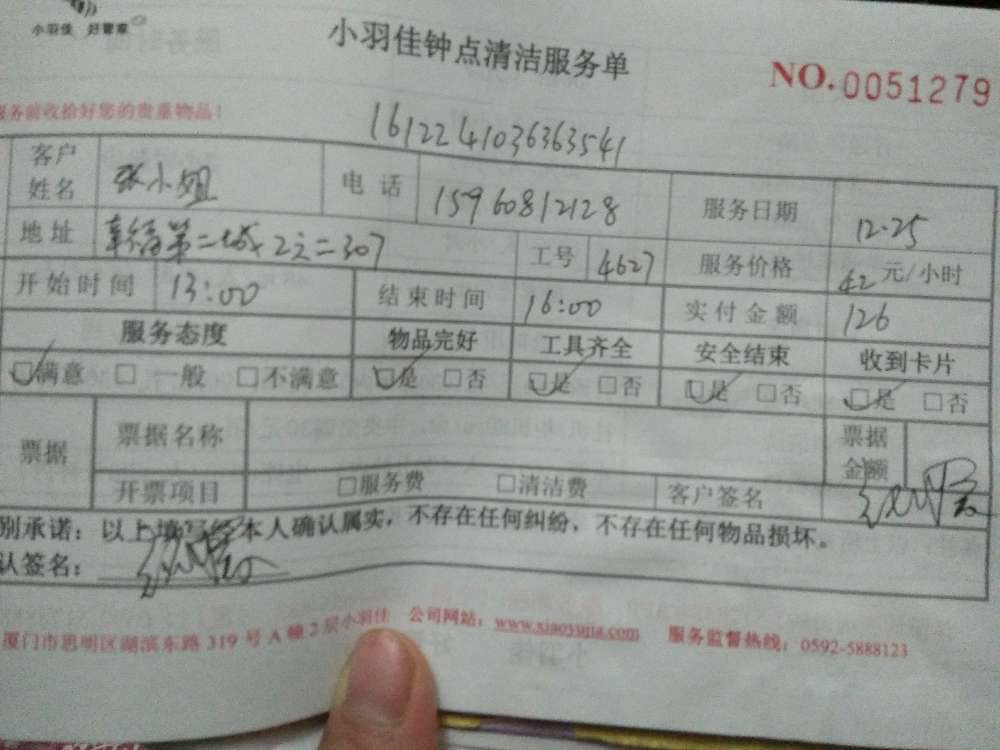 小羽佳 好管家
小羽佳钟点清洁服务单
NO.0051279
服务前收拾好您的贵重物品！
1612241036363541
客户姓名 张小姐 电话 15960812128 服务日期 12.25
地址 第二城 2之二307 工号 4627 服务价格 42元/小时
开始时间 13:00 结束时间 16:00 实付金额 126
服务态度 物品完好 工具齐全 安全结束 收到卡片
☑满意 □一般 □不满意 ☑是 □否 ☑是 □否 ☑是 □否 ☑是 □否
票据 票据名称 票据金额
开票项目 □服务费 □清洁费 客户签名
别承诺：以上填写经本人确认属实，不存在任何纠纷，不存在任何物品损坏。
认签名：
厦门市思明区湖滨东路 319 号 A 幢 2 层小羽佳 公司网站：www.xiaoyujia.com 服务监督热线：0592-5888123